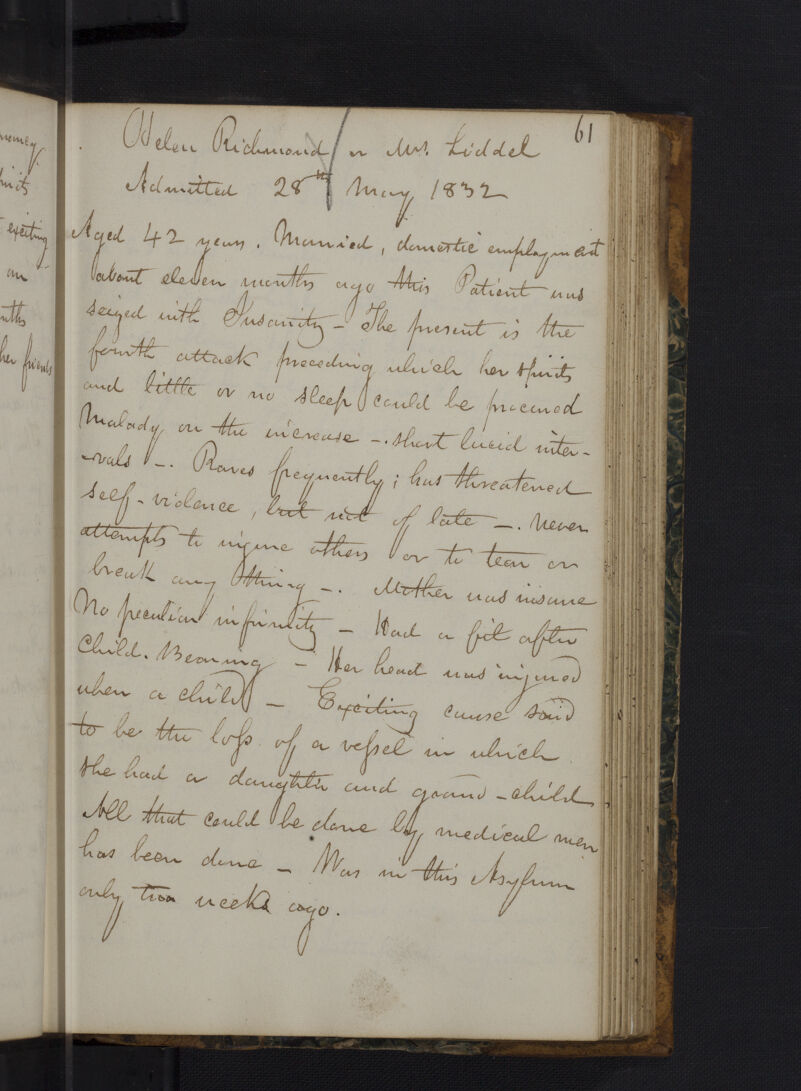 61
Helen Richmond or Mrs. Liddel
Admitted 28th May 1832
Aged 42 years. Married, domestic employment
about eleven months ago this Patient was
seized with Insanity - The present is the
fourth attack preceding which her spirits
and little or no sleep could be procured
Malady on the increase -. short lucid inter-
-vals -. Raves frequently; has threatened
self-violence, but not of late -. Never
attempts to injure others or to tear or
break any thing -. Mother was insane
No peculiar infirmity - Had a fit after
Child. Bearing - Her head was injured
when a child - Exciting cause said
to be the loss of a vessel in which
she had a daughter and grand-child
All that could be done by medical men
has been done - Was in this Asylum
only two weeks ago.
exciting
an
her friends